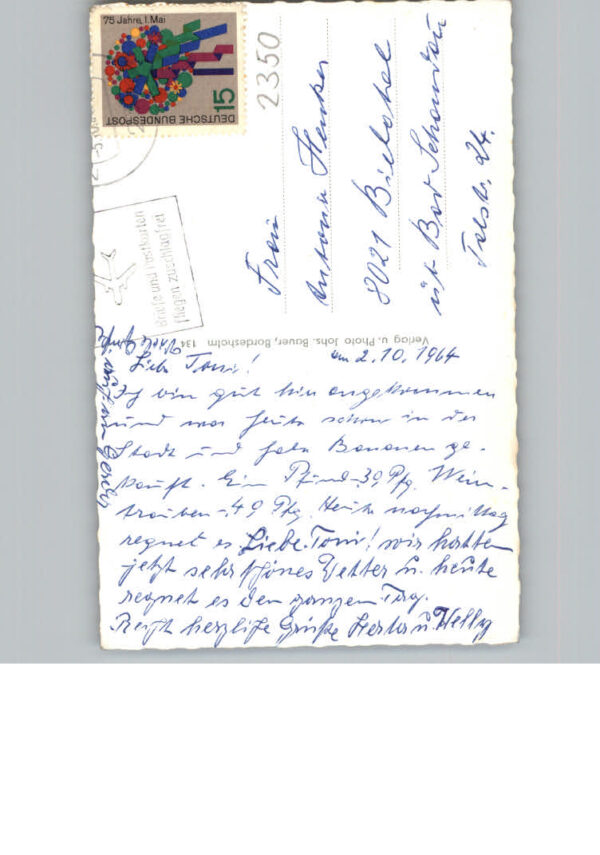 75 Jahre, 1. Mai
15
DEUTSCHE BUNDESPOST
Briefe und Postkarten
fliegen zuschlagfrei
2350
Frau
Antonie
8021 Bielatal
üb. Bad Schandau
Talstr. 24.
Verlag u. Photo Johs. Bauer, Bordesholm 134
am 2.10.1964
Liebe Toni!
Ich bin gut hin angekommen
und war heute schon in der
Stadt und habe Bananen ge-
kauft. Ein Pfund -,39 Pfg. Wein-
trauben -,49 Pfg. Heute nachmittag
regnet es. Liebe Toni! wir hatten
jetzt sehr schönes Wetter u. heute
regnet es den ganzen Tag.
Recht herzliche Grüße Herta u. Helly